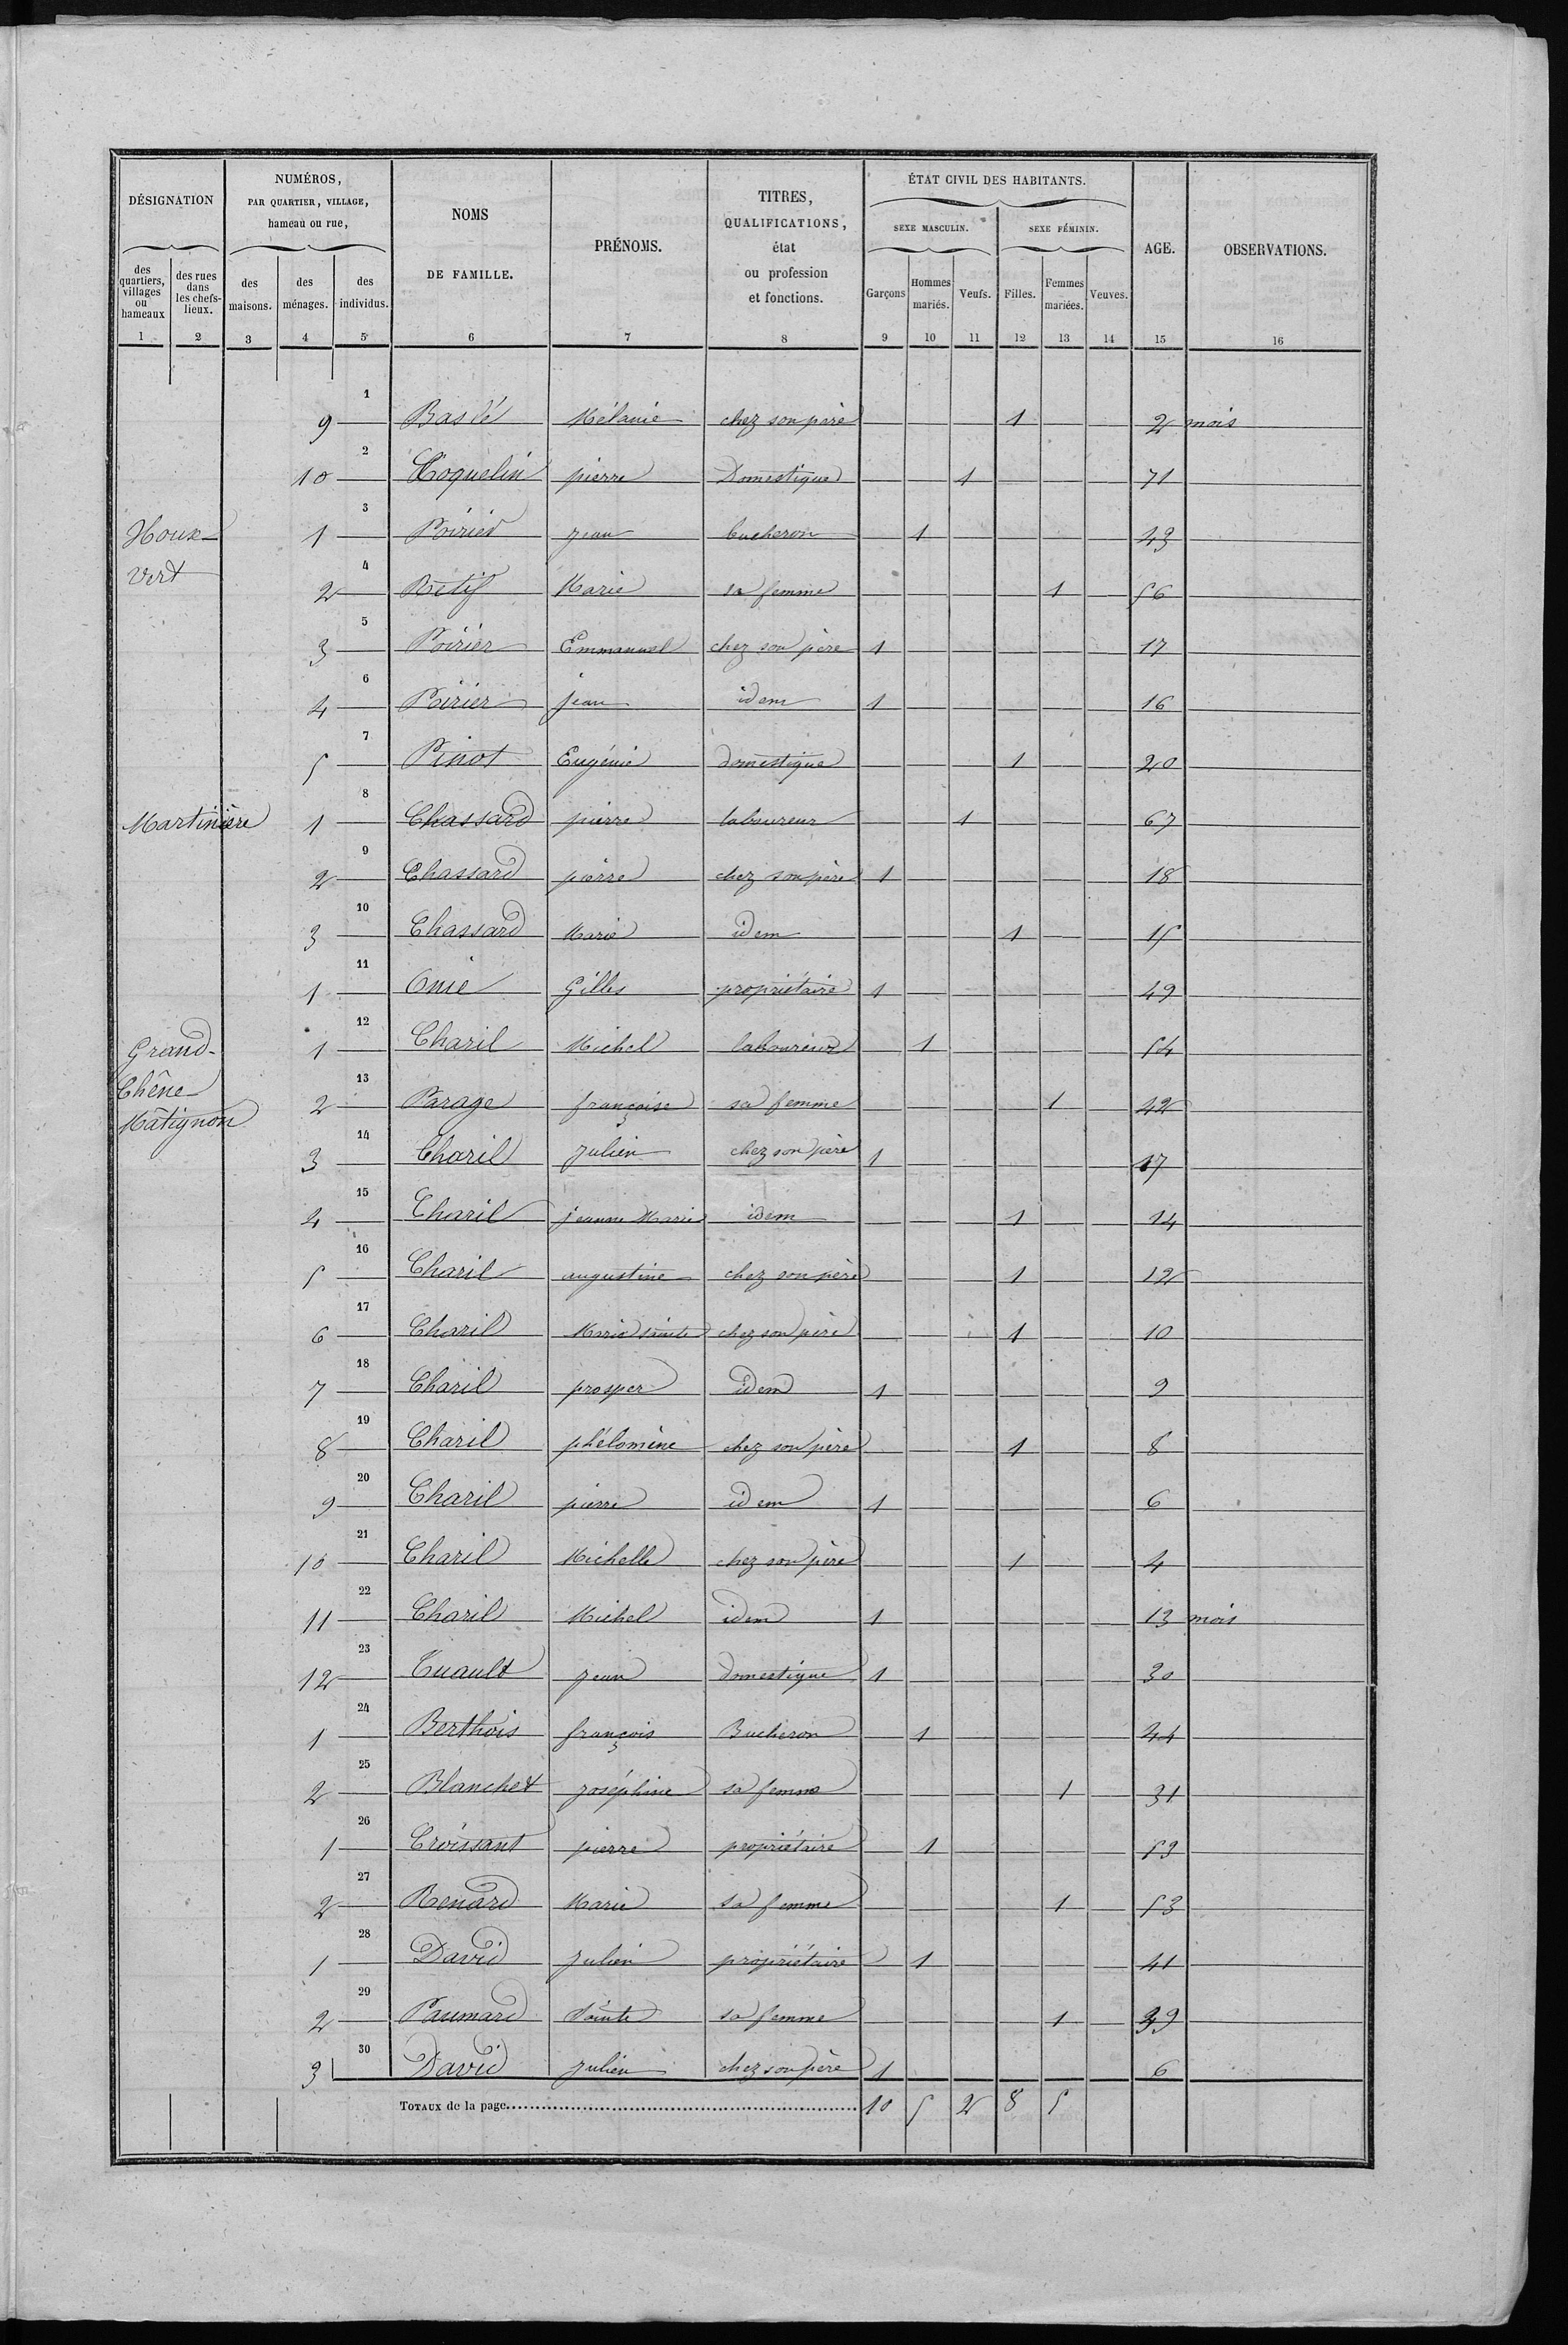 DÉSIGNATION
des quartiers, villages ou hameaux
des rues dans les chefs-lieux.
NUMÉROS,
PAR QUARTIER, VILLAGE,
hameau ou rue,
des maisons.
des ménages.
des individus.
NOMS
DE FAMILLE.
PRÉNOMS.
TITRES,
QUALIFICATIONS,
état
ou profession
et fonctions.
ÉTAT CIVIL DES HABITANTS.
SEXE MASCULIN.
SEXE FÉMININ.
Garçons
Hommes mariés.
Veufs.
Filles.
Femmes mariées.
Veuves.
AGE.
OBSERVATIONS.
1 2 3 4 5 6 7 8 9 10 11 12 13 14 15 16
9 1 Baslé Mélanie chez son père 1 2 mois
10 2 Coquelin pierre Domestique 1 71
Houx- 1 3 Poirier jean bucheron 1 43
vert 2 4 Retif Marie sa femme 1 56
3 5 Poirier Emmanuel chez son père 1 17
4 6 Poirier jean idem 1 16
5 7 Pinot Eugénie domestique 1 20
Martinière 1 8 Chassard pierre laboureur 1 67
2 9 Chassard pierre chez son père 1 18
3 10 Chassard Marie idem 1 15
1 11 Gilles propriétaire 1 49
Grand- 1 12 Charil Michel laboureur 1 54
Chêne
2 13 Parage françoise sa femme 1 42
Mâtignon
3 14 Charil Julien chez son père 1 17
4 15 Charil jeanne Marie idem 1 14
5 16 Charil augustine chez son père 1 12
6 17 Charil Marie sainte chez son père 1 10
7 18 Charil prosper idem 1 9
8 19 Charil phélomène chez son père 1 8
9 20 Charil pierre idem 1 6
10 21 Charil Michelle chez son père 1 4
11 22 Charil Michel idem 1 13 mois
12 23 Tuault jean domestique 1 30
1 24 Berthois françois Bucheron 1 44
2 25 Blanchet joséphine sa femme 1 31
1 26 Croissant pierre propriétaire 1 53
2 27 Renard Marie sa femme 1 53
1 28 David Julien propriétaire 1 41
2 29 Paumard Sainte sa femme 1 39
3 30 David Julien chez son père 1 6
TOTAUX de la page 10 5 2 8 5